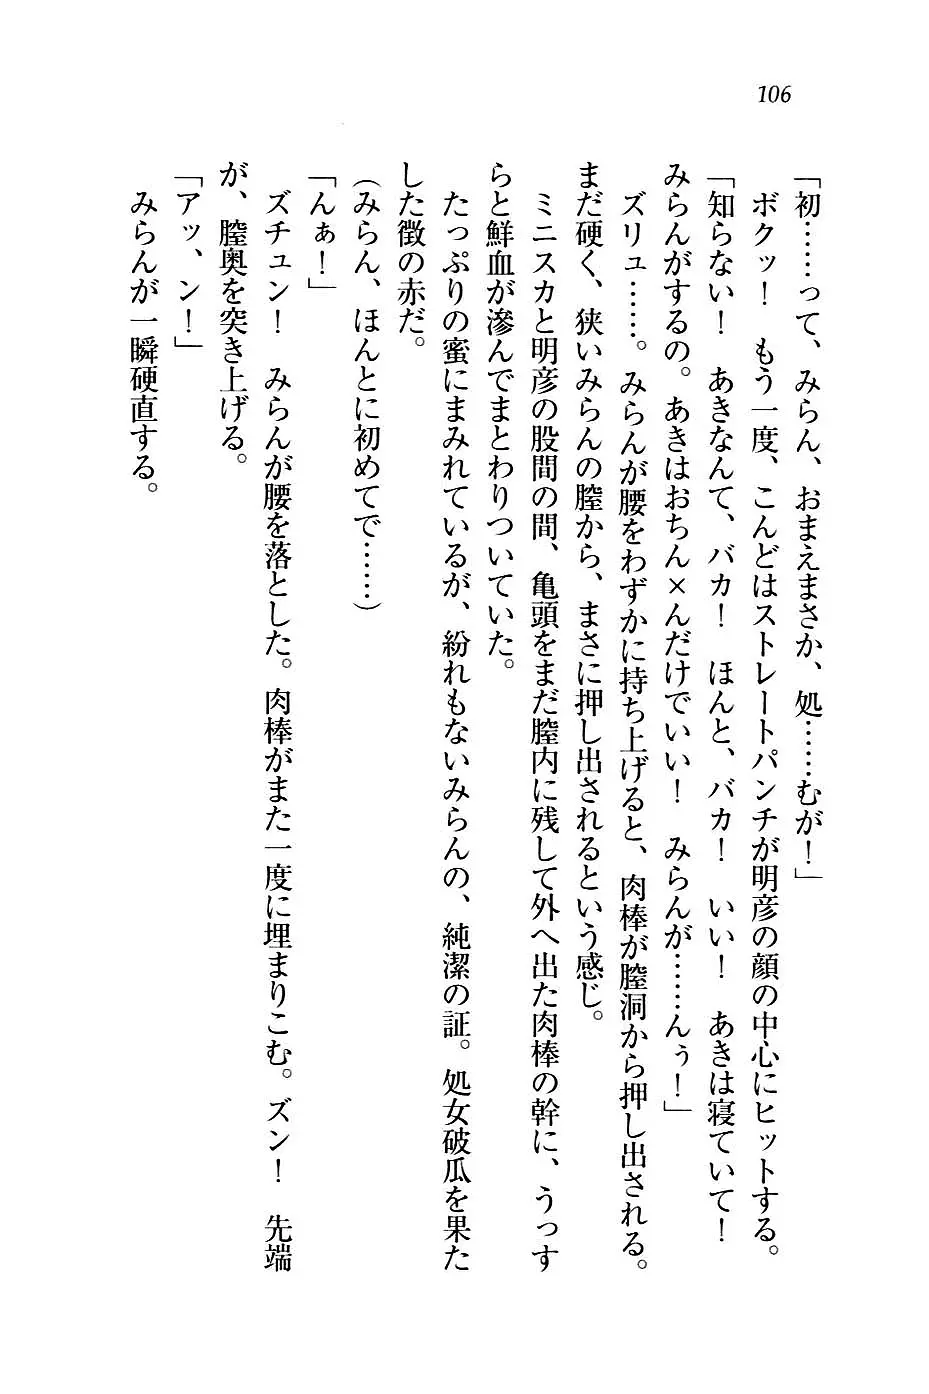 106
「初……って、みらん、おまえまさか、処……むが！」
ボクッ！　もう一度、こんどはストレートパンチが明彦の顔の中心にヒットする。
「知らない！　あきなんて、バカ！　ほんと、バカ！　いい！　あきは寝ていて！
みらんがするの。あきはおちん×んだけでいい！　みらんが……んぅ！」
ズリュ……。みらんが腰をわずかに持ち上げると、肉棒が膣洞から押し出される。
まだ硬く、狭いみらんの膣から、まさに押し出されるという感じ。
ミニスカと明彦の股間の間、亀頭をまだ膣内に残して外へ出た肉棒の幹に、うっす
らと鮮血が滲んでまとわりついていた。
たっぷりの蜜にまみれているが、紛れもないみらんの、純潔の証。処女破瓜を果た
した徴の赤だ。
（みらん、ほんとに初めてで……）
「んぁ！」
ズチュン！　みらんが腰を落とした。肉棒がまた一度に埋まりこむ。ズン！　先端
が、膣奥を突き上げる。
「アッ、ン！」
みらんが一瞬硬直する。